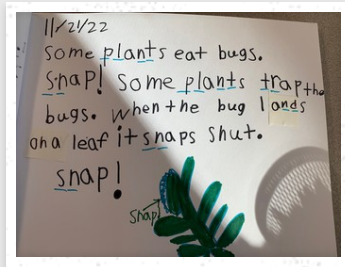 11/21/22
some plants eat bugs.
Snap! Some plants trap the
bugs. When the bug lands
on a leaf it snaps shut.
snap!
Snap